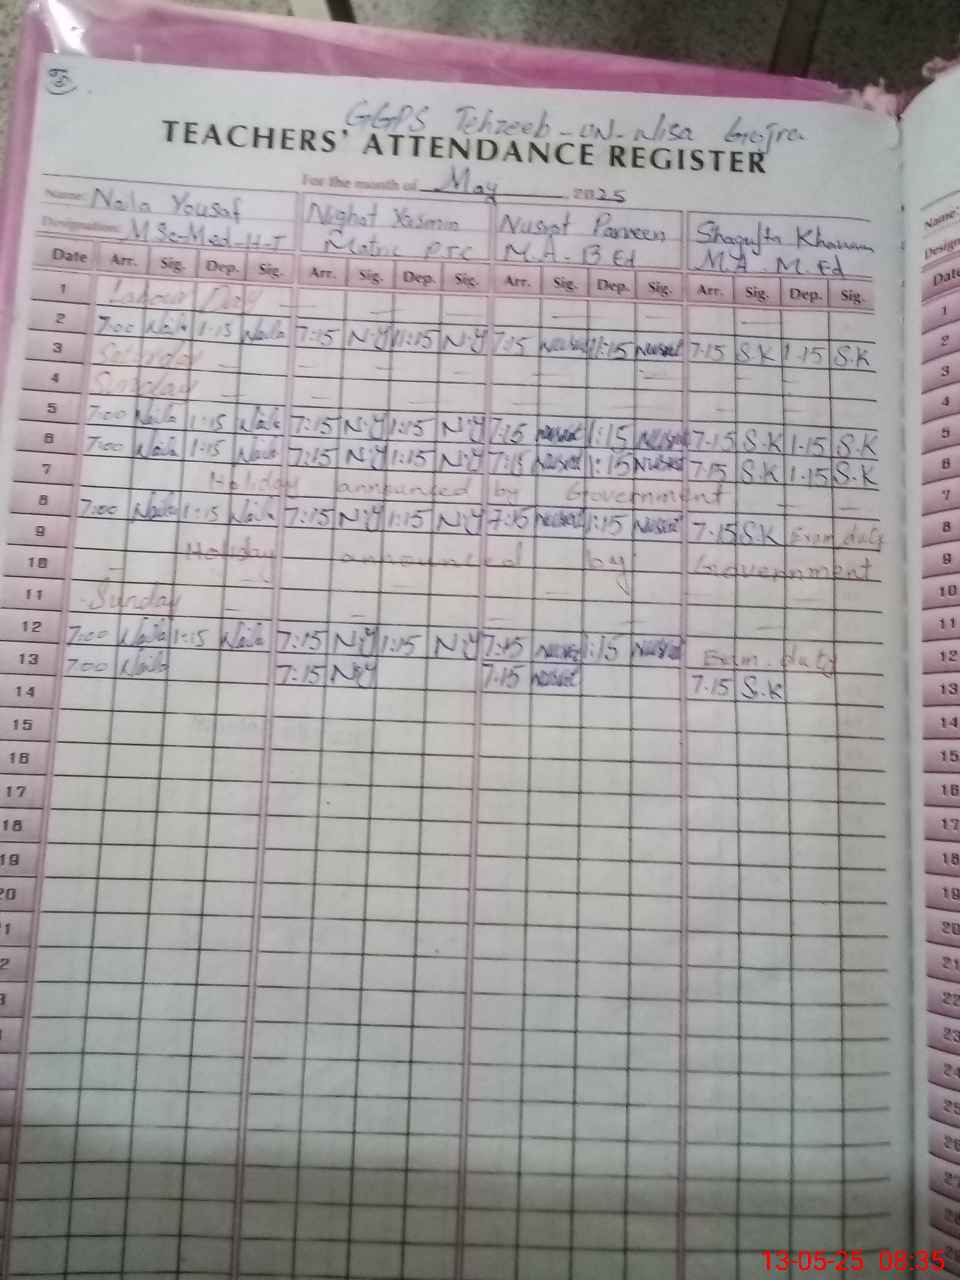 GGPS Tehzeeb-un-Nisa Gojra
TEACHERS' ATTENDANCE REGISTER
For the month of May 2025
Name: Naila Yousaf Nighat Yasmin Nusrat Parveen Shagufta Khanam
Designation: M Sc-Med-H-T Matric PTC M.A. B.Ed M.A. M.Ed
Date Arr. Sig. Dep. Sig. Arr. Sig. Dep. Sig. Arr. Sig. Dep. Sig. Arr. Sig. Dep. Sig.
1 Labour Day
2 7:00 Naila 1:15 Naila 7:15 N.Y 1:15 N.Y 7:15 Nusrat 1:15 Nusrat 7-15 S.K 1-15 S.K
3 Saturday
4 Sunday
5 7:00 Naila 1:15 Naila 7:15 N.Y 1:15 N.Y 7:15 Nusrat 1:15 Nusrat 7-15 S.K 1-15 S.K
6 7:00 Naila 1:15 Naila 7:15 N.Y 1:15 N.Y 7:15 Nusrat 1:15 Nusrat 7-15 S.K 1-15 S.K
7 Holiday announced by Government
8 7:00 Naila 1:15 Naila 7:15 N.Y 1:15 N.Y 7:15 Nusrat 1:15 Nusrat 7-15 S.K Exam duty
9 Holiday announced by Government
10
11 Sunday
12 7:00 Naila 1:15 Naila 7:15 N.Y 1:15 N.Y 7:15 Nusrat 1:15 Nusrat Exam. duty
13 7:00 Naila 7:15 N.Y 7-15 Nusrat 7-15 S.K
14
15
16
17
18
19
20
1
2
3
Name:
Design
Date
1
2
3
4
5
6
7
8
9
10
11
12
13
14
15
16
17
18
19
20
21
22
23
24
25
26
27
13-05-25 08:35